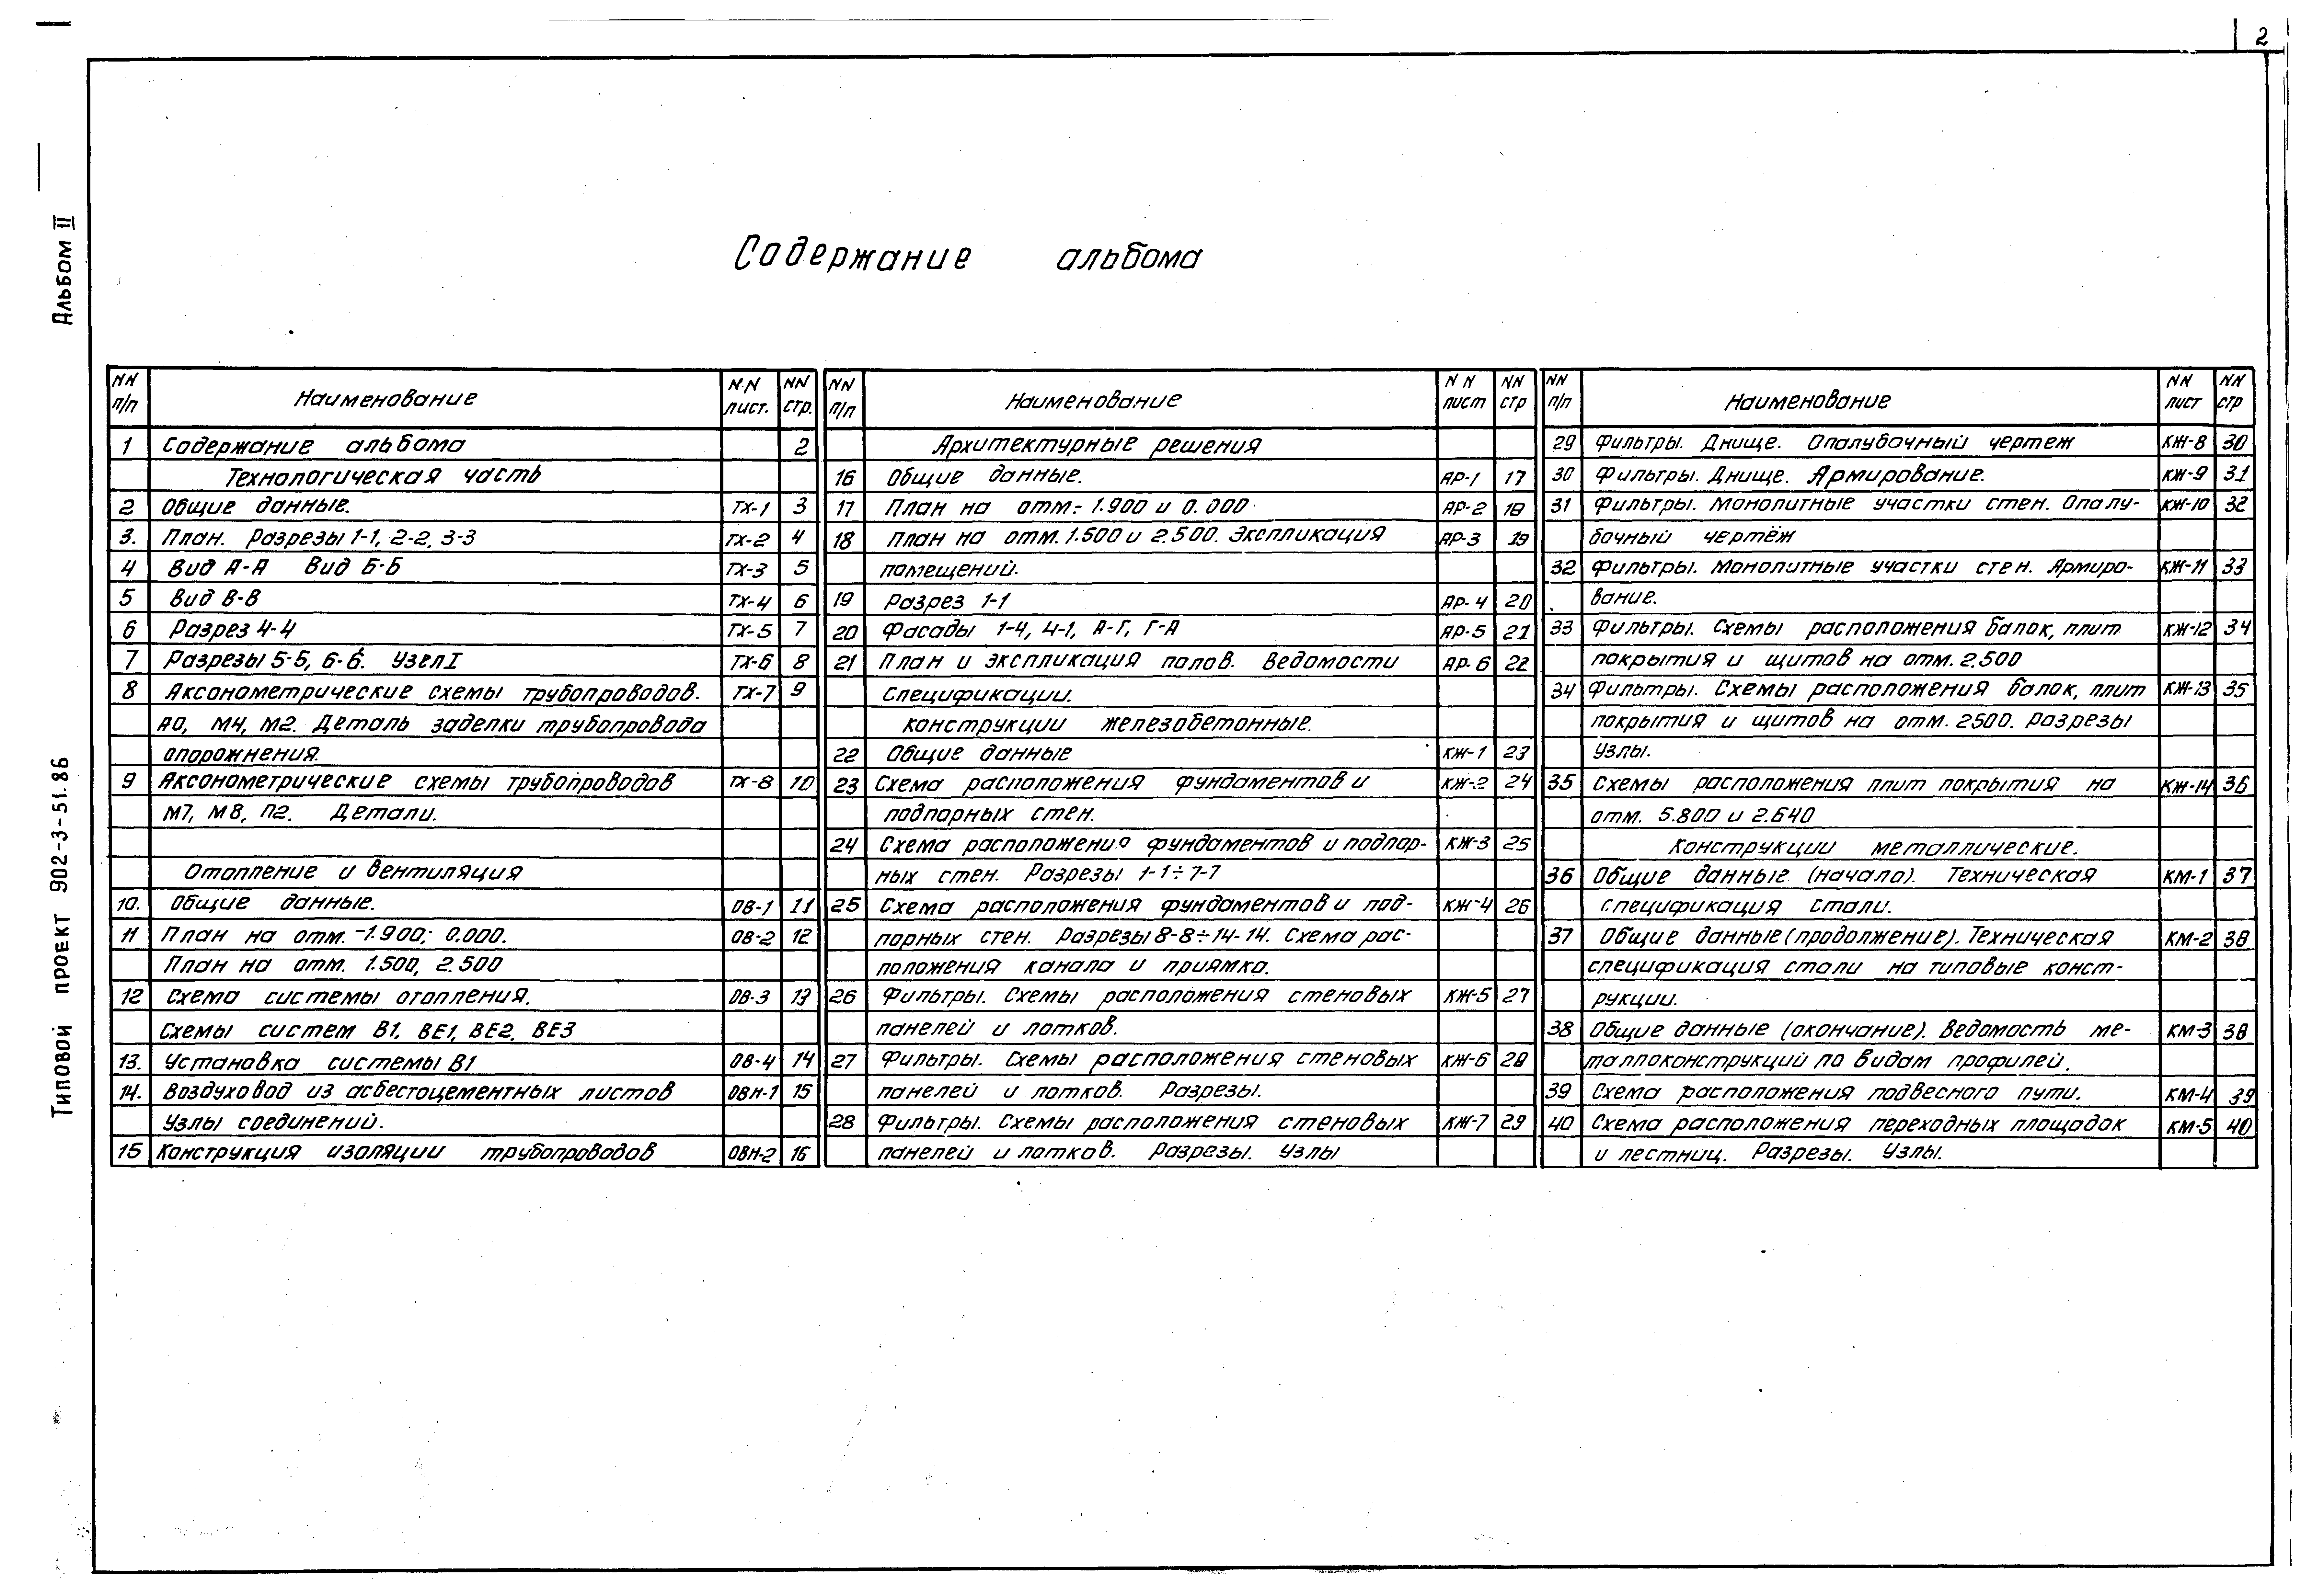 2
Альбом II
Типовой проект 902-3-51.86
Содержание альбома
NN п/п Наименование NN лист. NN стр.
1 Содержание альбома 2
Технологическая часть
2 Общие данные. ТХ-1 3
3. План. Разрезы 1-1, 2-2, 3-3 ТХ-2 4
4 Вид А-А Вид Б-Б ТХ-3 5
5 Вид В-В ТХ-4 6
6 Разрез 4-4 ТХ-5 7
7 Разрезы 5-5, 6-6. Узел I ТХ-6 8
8 Аксонометрические схемы трубопроводов. ТХ-7 9
А0, М4, М2. Деталь заделки трубопровода
опорожнения.
9 Аксонометрические схемы трубопроводов ТХ-8 10
М7, М8, П2. Детали.
Отопление и вентиляция
10. Общие данные. ОВ-1 11
11 План на отм. -1.900; 0.000. ОВ-2 12
План на отм. 1.500, 2.500
12 Схема системы отопления. ОВ-3 13
Схемы систем В1, ВЕ1, ВЕ2, ВЕ3
13. Установка системы В1 ОВ-4 14
14. Воздуховод из асбестоцементных листов ОВН-1 15
Узлы соединений.
15 Конструкция изоляции трубопроводов ОВН-2 16
NN п/п Наименование NN лист NN стр
Архитектурные решения
16 Общие данные. АР-1 17
17 План на отм.- 1.900 и 0.000 АР-2 18
18 План на отм. 1.500 и 2.500. Экспликация АР-3 19
помещений.
19 Разрез 1-1 АР-4 20
20 Фасады 1-4, 4-1, А-Г, Г-А АР-5 21
21 План и экспликация полов. Ведомости АР-6 22
спецификации.
Конструкции железобетонные.
22 Общие данные КЖ-1 23
23 Схема расположения фундаментов и КЖ-2 24
подпорных стен.
24 Схема расположения фундаментов и подпор- КЖ-3 25
ных стен. Разрезы 1-1÷7-7
25 Схема расположения фундаментов и под- КЖ-4 26
порных стен. Разрезы 8-8÷14-14. Схема рас-
положения канала и приямка.
26 Фильтры. Схемы расположения стеновых КЖ-5 27
панелей и лотков.
27 Фильтры. Схемы расположения стеновых КЖ-6 28
панелей и лотков. Разрезы.
28 Фильтры. Схемы расположения стеновых КЖ-7 29
панелей и лотков. Разрезы. Узлы
NN п/п Наименование NN лист NN стр
29 Фильтры. Днище. Опалубочный чертеж КЖ-8 30
30 Фильтры. Днище. Армирование. КЖ-9 31
31 Фильтры. Монолитные участки стен. Опалу- КЖ-10 32
бочный чертёж
32 Фильтры. Монолитные участки стен. Армиро- КЖ-11 33
вание.
33 Фильтры. Схемы расположения балок, плит КЖ-12 34
покрытия и щитов на отм. 2.500
34 Фильтры. Схемы расположения балок, плит КЖ-13 35
покрытия и щитов на отм. 2500. Разрезы
Узлы.
35 Схемы расположения плит покрытия на КЖ-14 36
отм. 5.800 и 2.640
Конструкции металлические.
36 Общие данные (начало). Техническая КМ-1 37
спецификация стали.
37 Общие данные (продолжение). Техническая КМ-2 38
спецификация стали на типовые конст-
рукции.
38 Общие данные (окончание). Ведомость ме- КМ-3 38
таллоконструкций по видам профилей.
39 Схема расположения подвесного пути. КМ-4 39
40 Схема расположения переходных площадок КМ-5 40
и лестниц. Разрезы. Узлы.